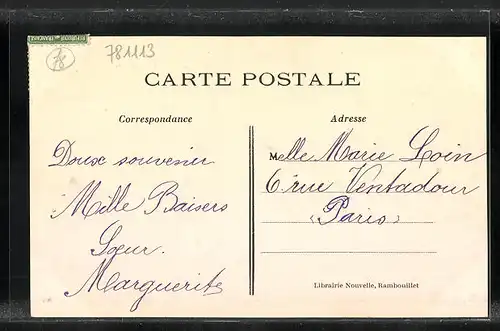 78
781113
CARTE POSTALE
Correspondance
Adresse
Doux souvenir
Mille Baisers
Sœur
Marguerite
Melle Marie Loin
6 rue Ventadour
Paris
Librairie Nouvelle, Rambouillet